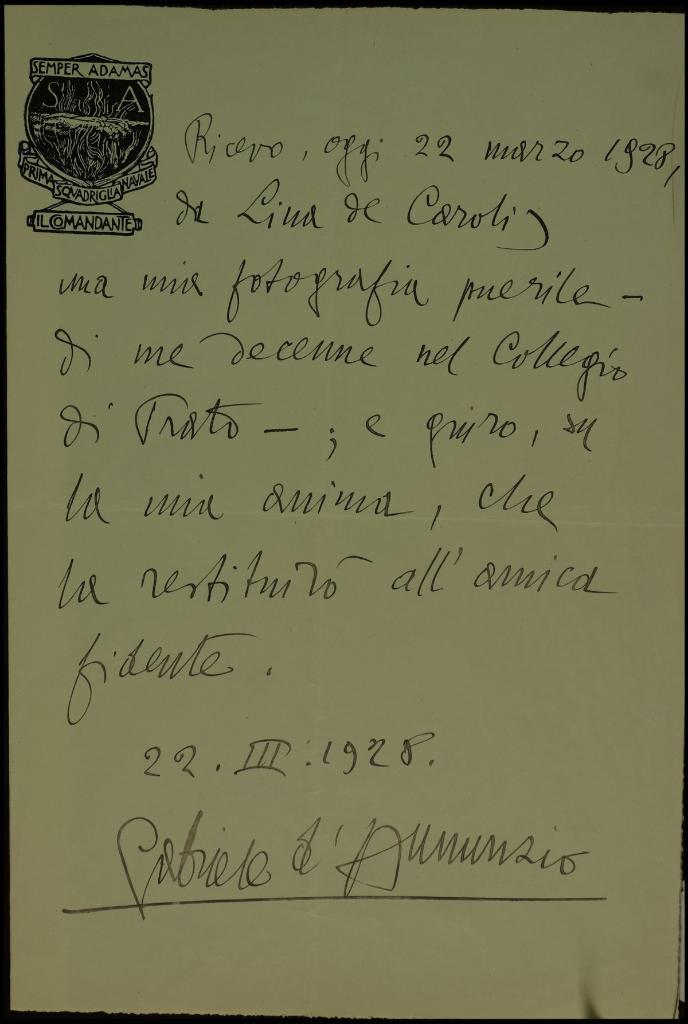 SEMPER ADAMAS
S A
PRIMA SQVADRIGLIA NAVALE
IL COMANDANTE
Ricevo, oggi 22 marzo 1928,
da Lina de Carolis
una mia fotografia puerile –
di me decenne nel Collegio
di Prato – ; e giuro, su
la mia anima, che
la restituirò all' amica
fidente.
22. III. 1928.
Gabriele d'Annunzio